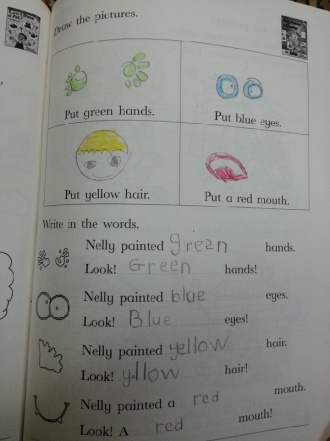 Draw the pictures.
Put green hands.
Put blue eyes.
Put yellow hair.
Put a red mouth.
Write in the words.
Nelly painted green hands.
Look! Green hands!
Nelly painted blue eyes.
Look! Blue eyes!
Nelly painted yellow hair.
Look! yllow hair!
Nelly painted a red mouth.
Look! A red mouth!